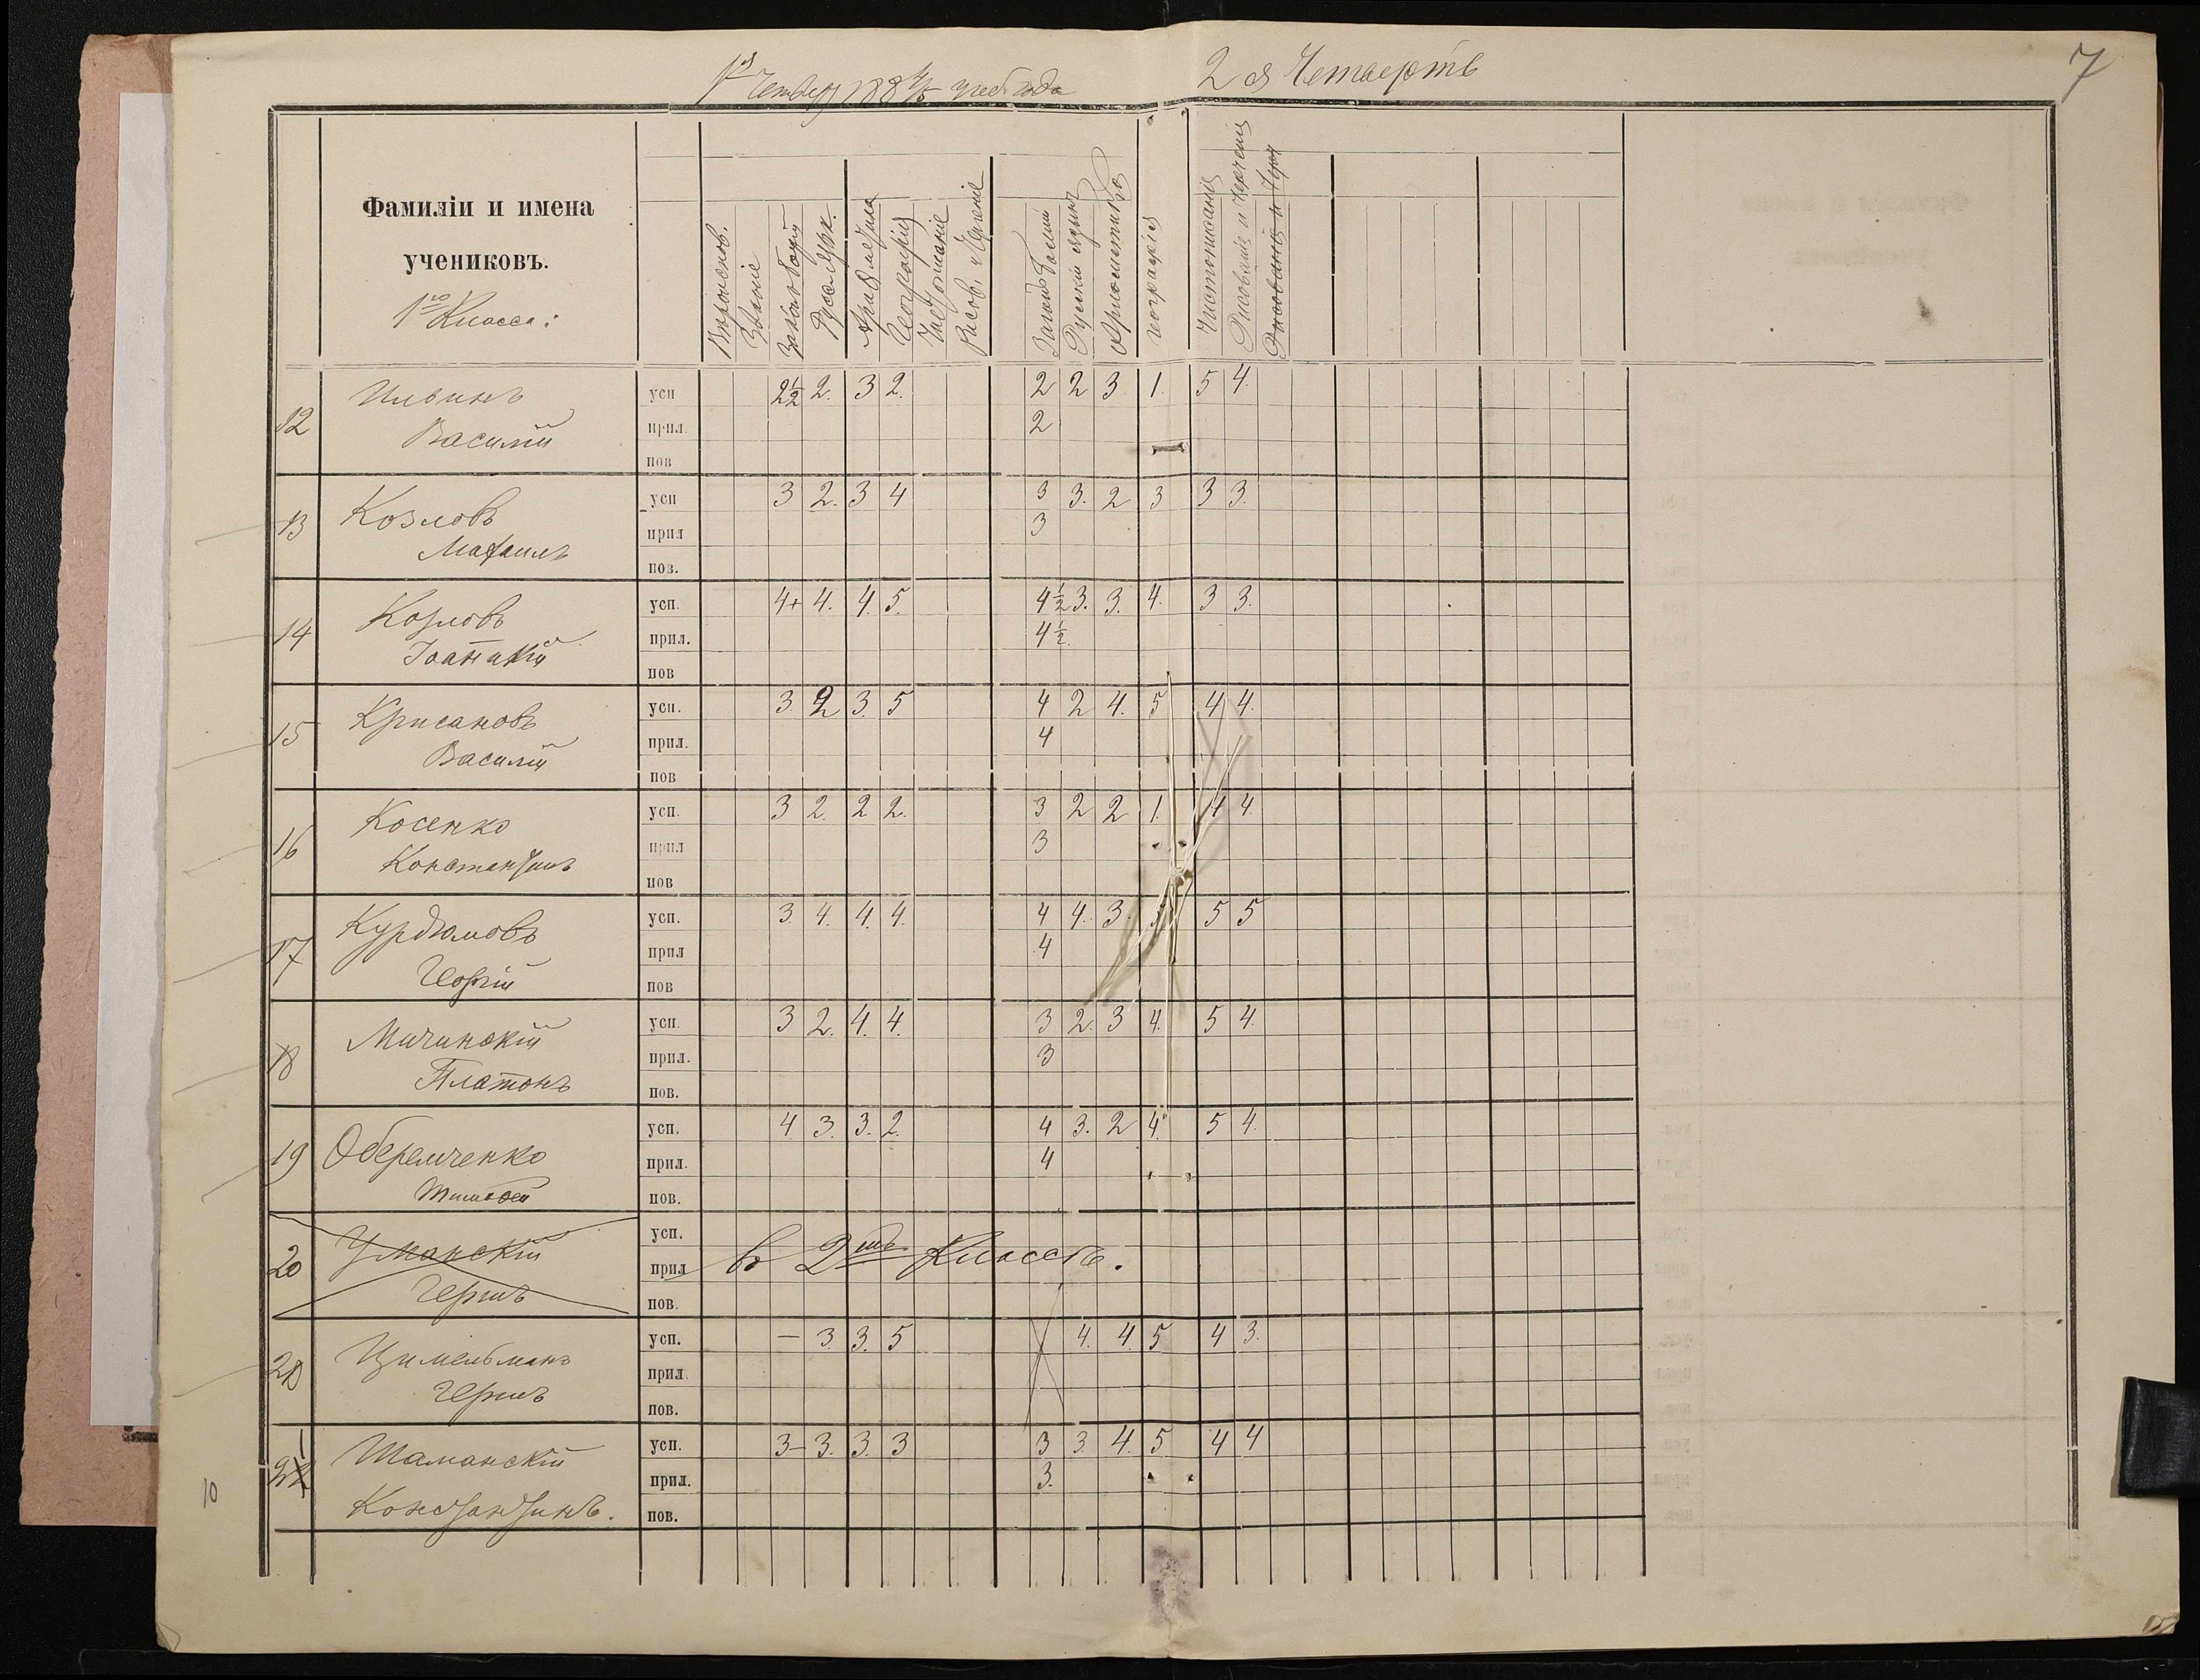 1я Четверть 1884/5 учеб. года
2я Четверть
7
Фамиліи и имена
учениковъ.
1го Класса:
Вѣроиспов.
Званіе
Законъ Божій
Русск. Яз.
Ариѳметика
Географія
Чистописаніе
Рисов. и Черченіе
Законъ Божій
Русскій языкъ
Ариөметика
географія
Чистописанія
Рисованія и Черченія
12 Ильинъ усп 2½ 2. 3 2. 2 2 3 1. 5 4.
Василій прил 2
пов
13 Козловъ усп 3 2. 3 4 3 3. 2 3 3 3.
Михаилъ прил 3
пов.
14 Козловъ усп. 4+ 4. 4. 5. 4½ 3. 3. 4. 3 3.
Іоаникій прил. 4½
пов
15 Крисановъ усп. 3. 2 3. 5 4 2 4. 5 4 4.
Василій прил. 4
пов
16 Косенко усп. 3 2. 2 2. 3 2 2 1. 4 4.
Константинъ прил 3
пов
17 Курдюмовъ усп. 3 4. 4. 4. 4 4. 3. 5 5
Георгій прил 4
пов
18 Мичинскій усп. 3 2. 4. 4. 3 2. 3 4. 5 4.
Платонъ прил. 3
пов.
19 Оберемченко усп. 4 3. 3. 2. 4 3. 2 4. 5 4.
Тимофей прил. 4
пов.
20 Уманскій усп.
прил въ 2мъ Классѣ.
Герш пов.
Цимельманъ усп. — 3. 3. 5 4. 4. 5 4 3.
Гершъ прил.
пов.
Шаманскій усп. 3- 3. 3. 3 3 3 4. 5 4 4
прил. 3.
Константинъ. пов.
10